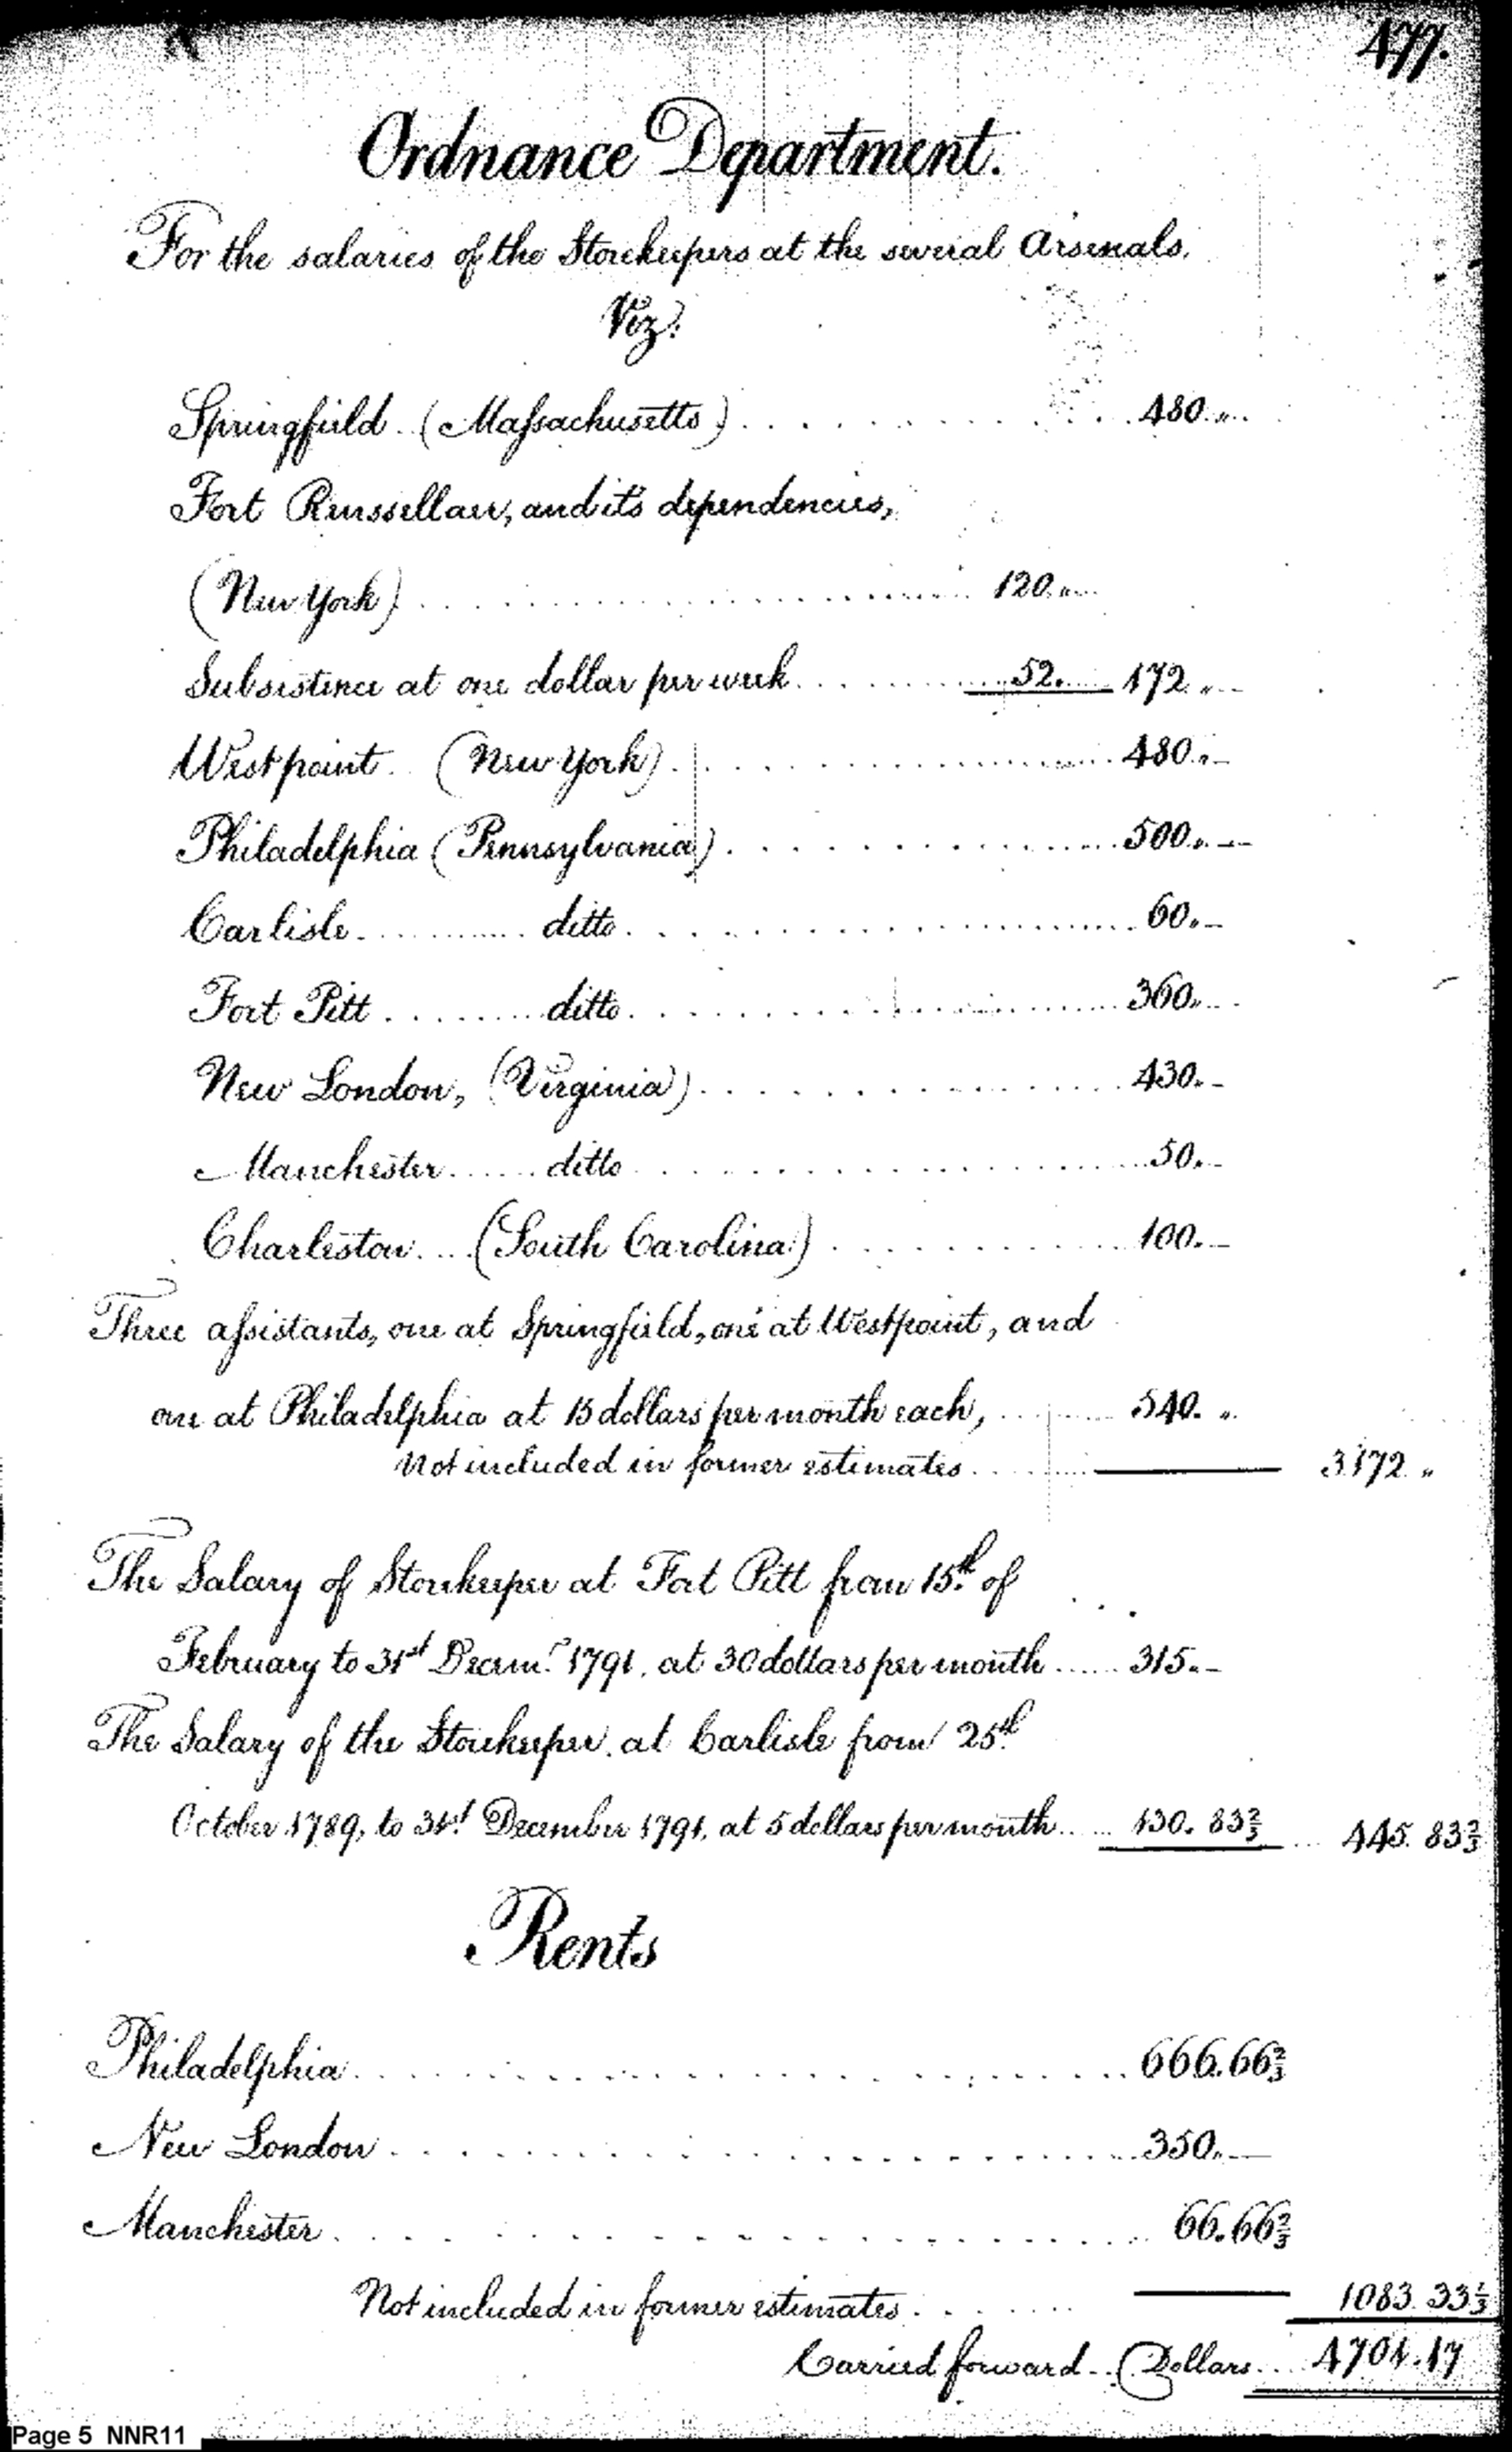 477.
Ordnance Department.
For the salaries of the Storekeepers at the several Arsenals.
Viz:
Springfield (Massachusetts) . . . . . . . . . . . 480. "
Fort Renssellaer, and it's dependencies,
(New York) . . . . . . . . . . . . . . 120. "
Subsistence at one dollar per week . . . . . . 52. 172. "
Westpoint. (New York) . . . . . . . . . . . 480. "
Philadelphia (Pennsylvania) . . . . . . . . . . 500. "
Carlisle . . . . . ditto . . . . . . . . . . . . 60. "
Fort Pitt . . . . . ditto . . . . . . . . . . . . 360. "
New London, (Virginia) . . . . . . . . . . . 430. "
Manchester . . . . ditto . . . . . . . . . . . 50. "
Charleston . . . (South Carolina) . . . . . . . . 100. "
Three assistants, one at Springfield, one at Westpoint, and
one at Philadelphia at 15 dollars per month each, . . . . 540. "
Not included in former estimates . . . . 3172 "
The Salary of Storekeeper at Fort Pitt from 15th. of
February to 31st Decemr. 1791. at 30 dollars per month . . . . 315. "
The Salary of the Storekeeper at Carlisle from 25th.
October 1789, to 31st. December 1791. at 5 dollars per month . . . . 130. 83⅔ . . . 445. 83⅔
Rents
Philadelphia . . . . . . . . . . . . . . . . 666.66⅔
New London . . . . . . . . . . . . . . . . 350. "
Manchester . . . . . . . . . . . . . . . . 66.66⅔
Not included in former estimates . . . . . . . 1083. 33⅓
Carried forward . . Dollars . . . 4701.17
Page 5 NNR11